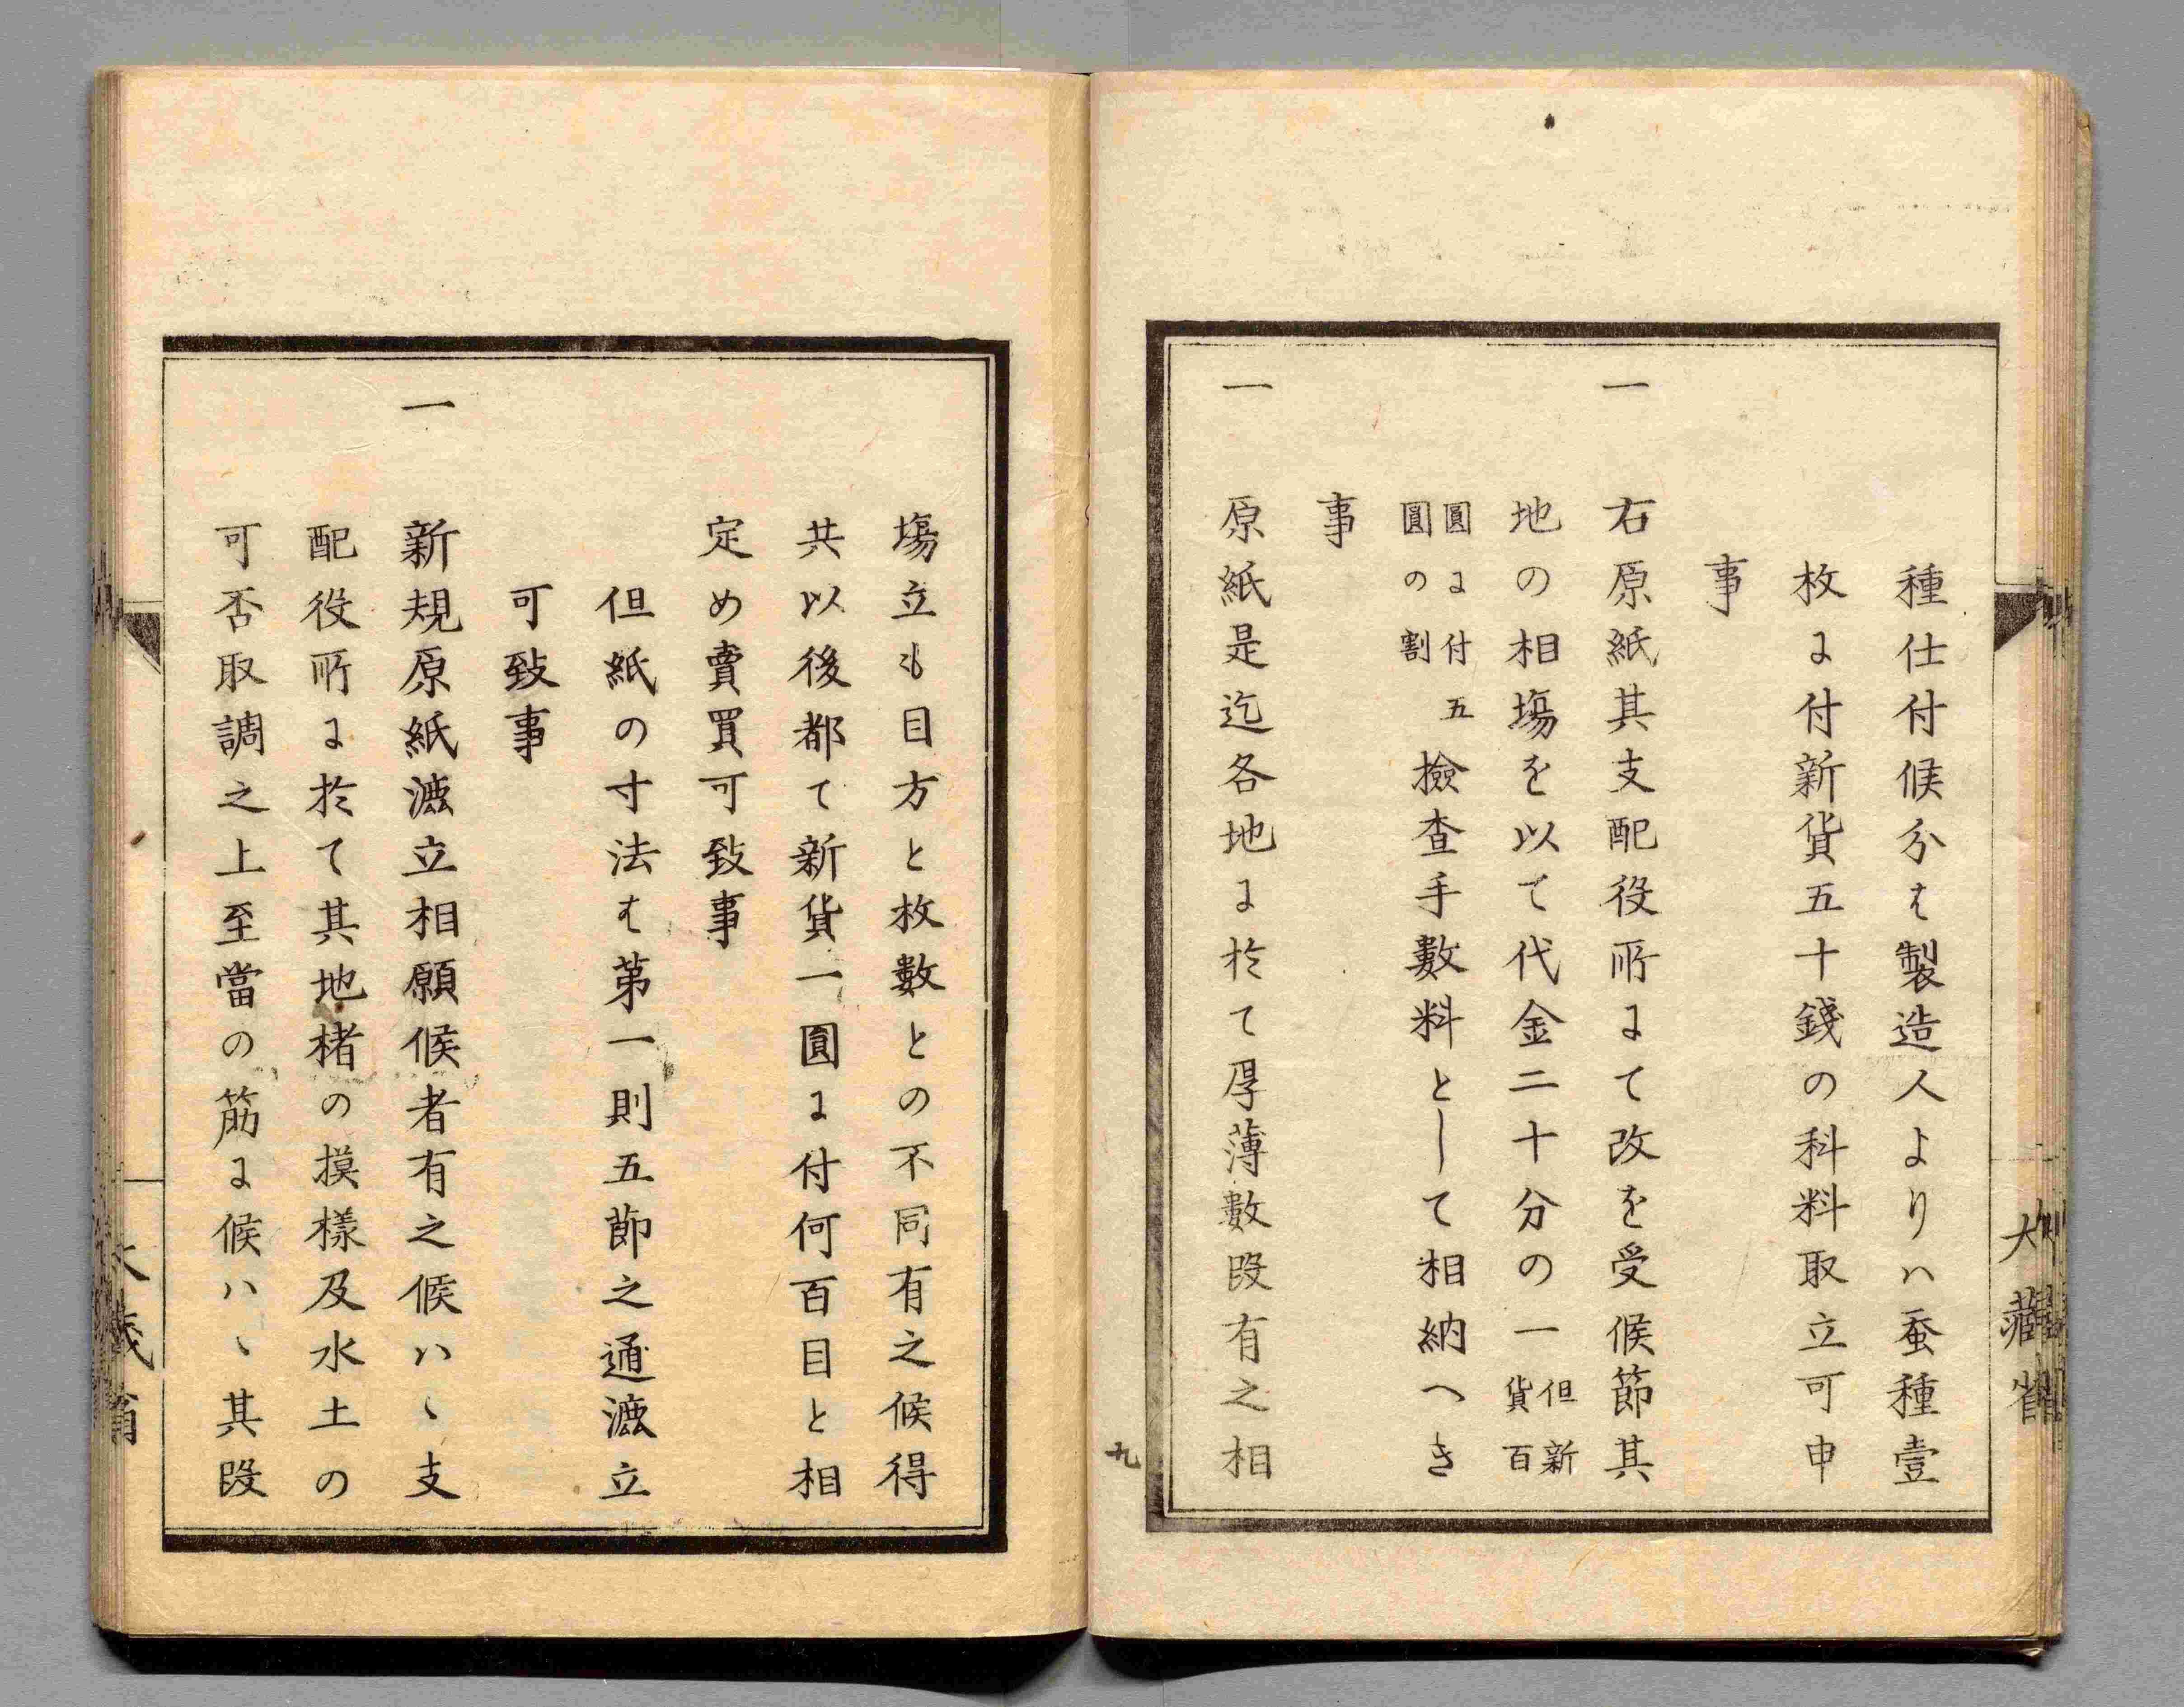 種仕付候分は製造人よりハ蚕種壹
枚に付新貨五十錢の科料取立可申
事
一 右原紙其支配役所にて改を受候節其
地の相塲を以て代金二十分の一但新貨百
圓に付五圓の割檢査手數料として相納へき
事
一 原紙是迄各地に於て厚薄數段有之相
九
大藏省
塲立も目方と枚數との不同有之候得
共以後都て新貨一圓に付何百目と相
定め賣買可致事
但紙の寸法は第一則五節之通漉立
可致事
一 新規原紙漉立相願候者有之候ハヽ支
配役所に於て其地楮の摸樣及水土の
可否取調之上至當の筋に候ハヽ其段